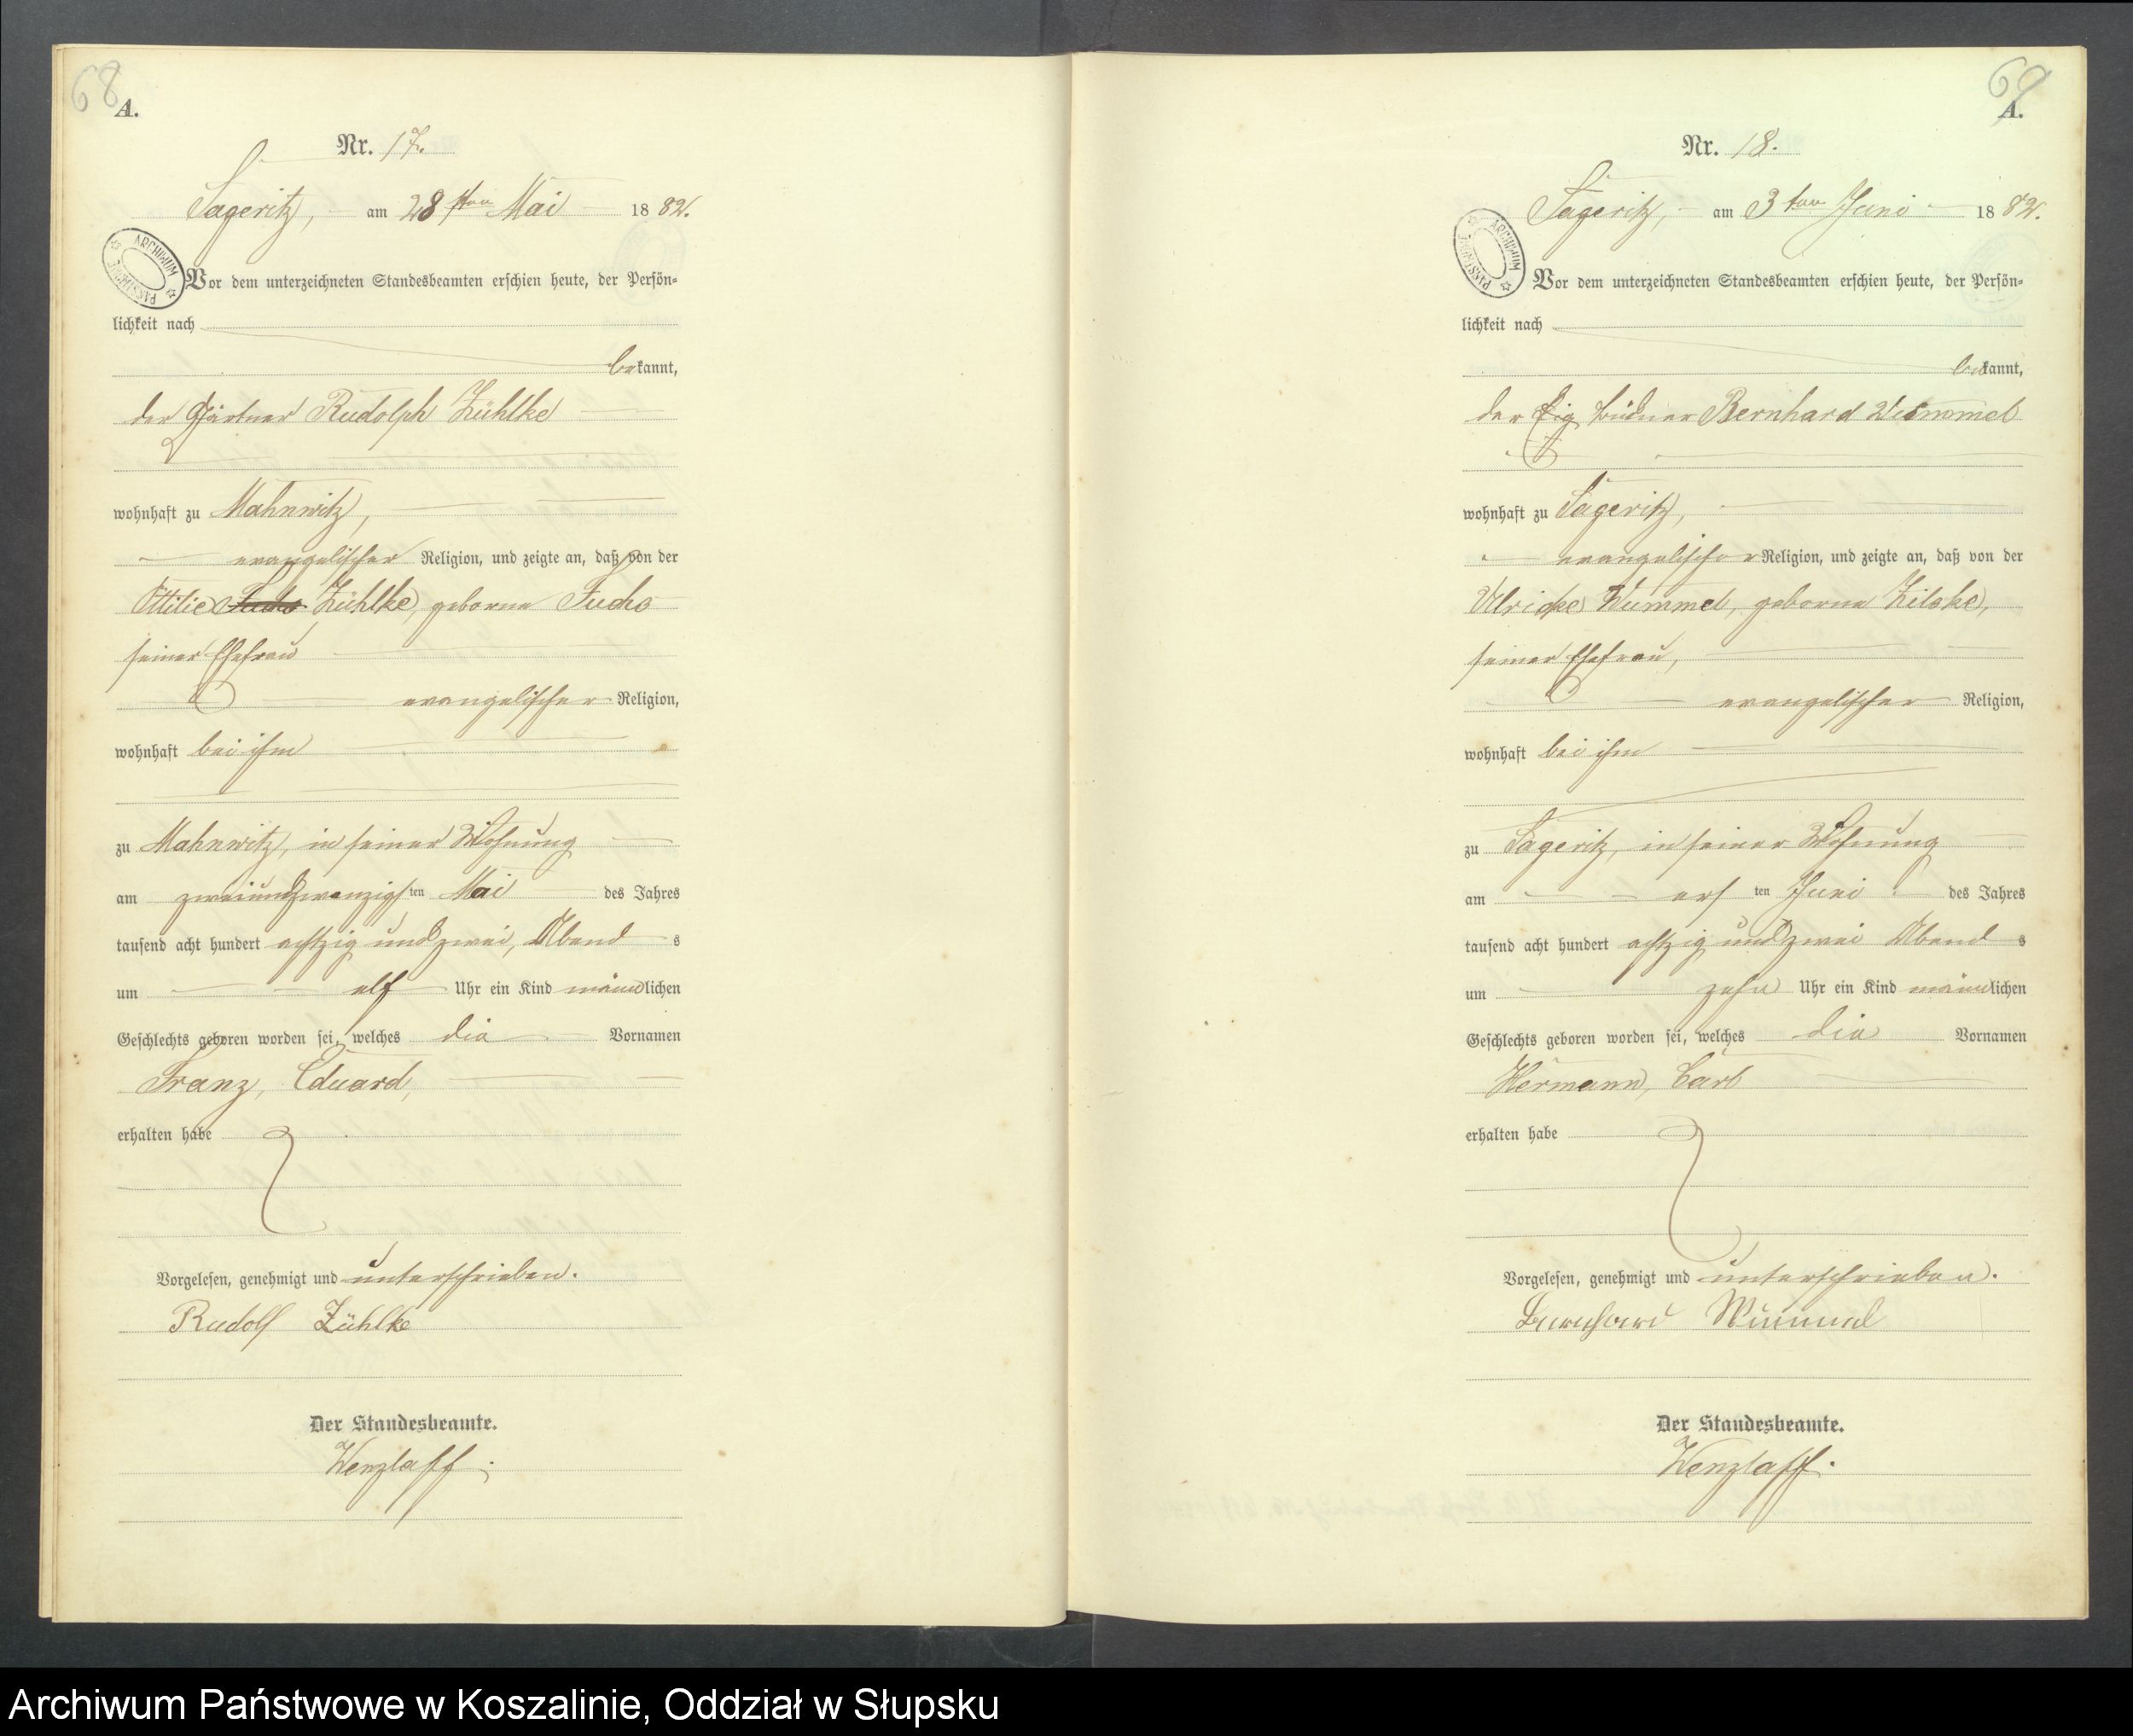 68
A.
Nr. 17.
Sageritz, am 28sten Mai 1882.
ARCHIWUM PAŃSTWOWE
Vor dem unterzeichneten Standesbeamten erschien heute, der Persön-
lichkeit nach
bekannt,
der Gärtner Rudolph Zühlke
wohnhaft zu Mahnwitz,
evangelischer Religion, und zeigte an, daß von der
Ottilie Fuchs Zühlke, geborne Fuchs
seiner Ehefrau
evangelischer Religion,
wohnhaft bei ihm
zu Mahnwitz, in seiner Wohnung
am zweiundzwanzigsten Mai des Jahres
tausend acht hundert achtzig und zwei, Abends
um elf Uhr ein Kind männlichen
Geschlechts geboren worden sei, welches die Vornamen
Franz, Eduard,
erhalten habe
Vorgelesen, genehmigt und unterschrieben.
Rudolf Zühlke
Der Standesbeamte.
Wenzlaff.
69
A.
Nr. 18.
Sageritz, am 3ten Juni 1882.
ARCHIWUM PAŃSTWOWE
Vor dem unterzeichneten Standesbeamten erschien heute, der Persön-
lichkeit nach
bekannt,
der Büdner Bernhard Wummel
wohnhaft zu Sageritz,
evangelischer Religion, und zeigte an, daß von der
Ulricke Wummel, geborne Zilske,
seiner Ehefrau,
evangelischer Religion,
wohnhaft bei ihm
zu Sageritz, in seiner Wohnung
am ersten Juni des Jahres
tausend acht hundert achtzig und zwei Abends
um zehn Uhr ein Kind männlichen
Geschlechts geboren worden sei, welches die Vornamen
Hermann, Carl
erhalten habe
Vorgelesen, genehmigt und unterschrieben.
Bernhard Wummel
Der Standesbeamte.
Wenzlaff.
Archiwum Państwowe w Koszalinie, Oddział w Słupsku